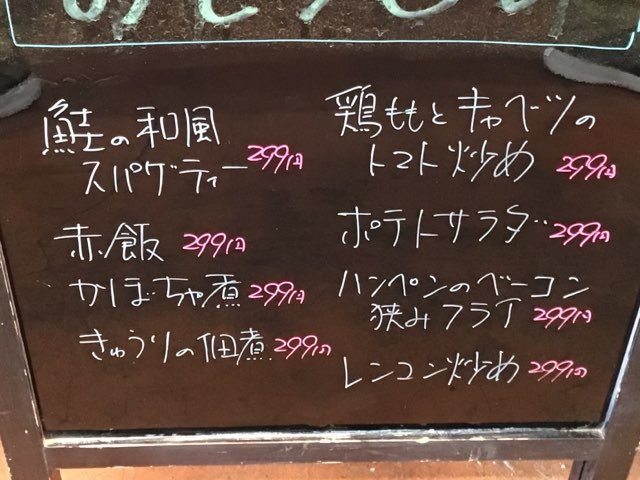 鮭の和風
スパゲティー 299円
赤飯 299円
かぼちゃ煮 299円
きゅうりの佃煮 299円
鶏ももとキャベツの
トマト炒め 299円
ポテトサラダ 299円
ハンペンのベーコン
狭みフライ 299円
レンコン炒め 299円